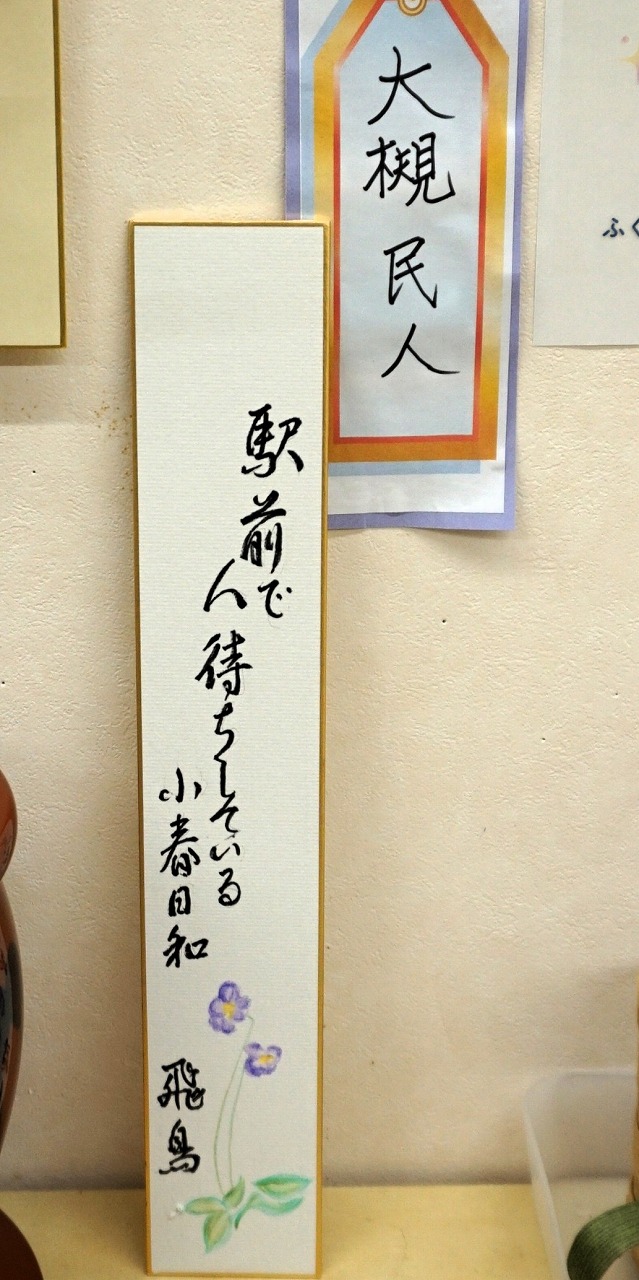 大槻民人
駅前で
人待ちしている
小春日和
飛鳥
ふく